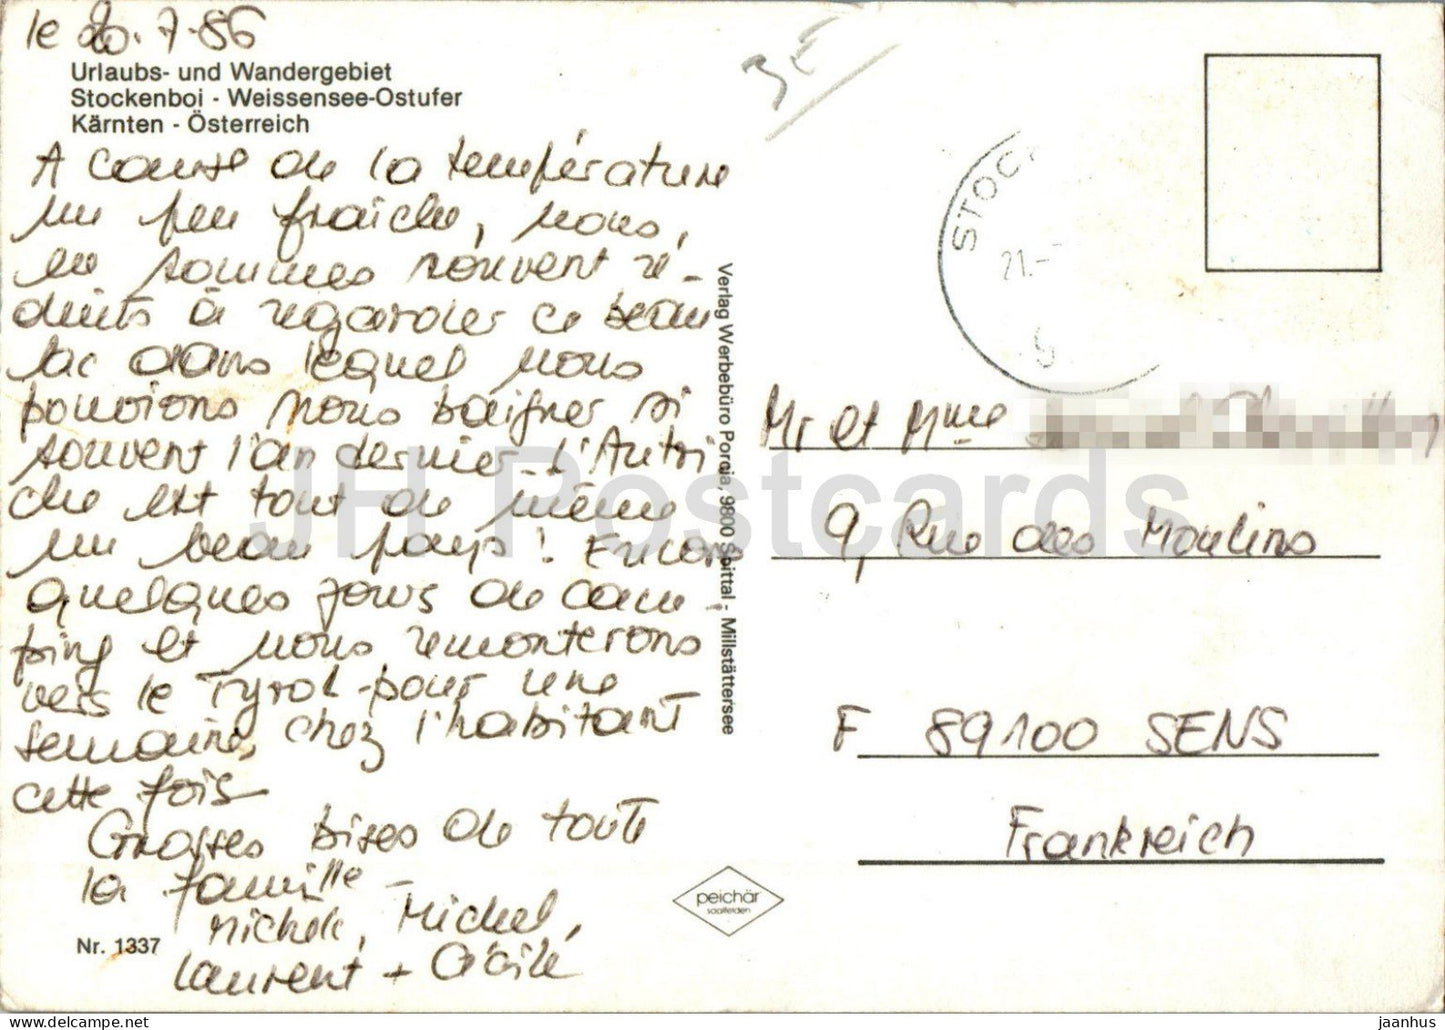 le 20.7.86
Urlaubs- und Wandergebiet
Stockenboi - Weissensee-Ostufer
Kärnten - Österreich
A cause de la température
un peu fraîche, nous,
en sommes souvent ré-
duits à regarder ce beau
lac dans lequel nous
pouvions nous baigner si
souvent l'an dernier. L'Autri
che est tout de même
un beau pays! Encore
quelques jours de cam-
ping et nous remonterons
vers le Tyrol pour une
semaine, chez l'habitant
cette fois
Grosses bises de toute
la famille -
Michele, Michel,
Laurent + Cécile
Nr. 1337
Verlag Werbebüro Porcia, 9800 Spittal - Millstättersee
peichär
saalfelden
3E
STOC
21.-
9
Mr et Mme
9, Rue des Moulins
F 89100 SENS
Frankreich
JH Postcards
http://www.delcampe.net
jaanhus